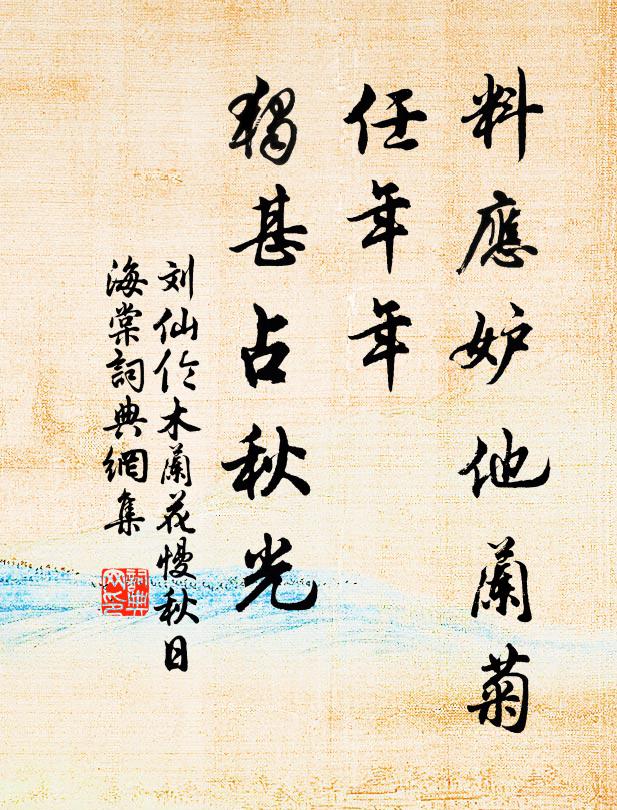 料應妒他蘭菊
任年年
獨甚占秋光
刘仙伦木蘭花慢秋日
海棠詞典網集
詞典